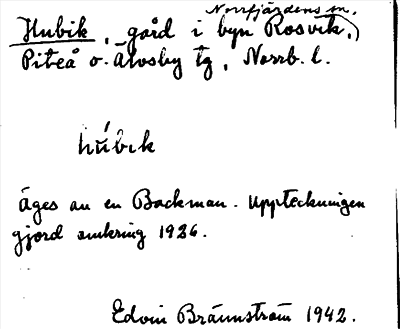 Norrfjärdens sn.
Hubik, gård i byn Rosvik,
Piteå o. Älvsby tg, Norrb. l.
húbik
Äges av en Backman. Uppteckningen
gjord omkring 1926.
Edvin Brännström 1942.